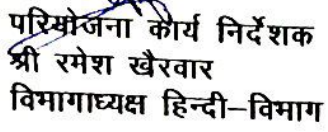 परियोजना कार्य निर्देशक
श्री रमेश खैरवार
विभागाध्यक्ष हिन्दी–विभाग